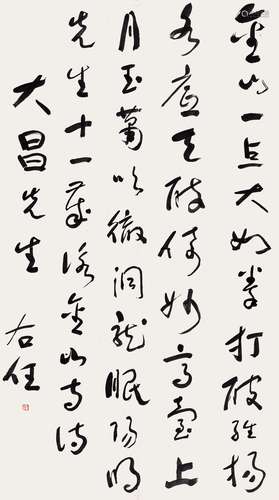 金山一点大如拳打破維揚
水底天醉倚妙高臺上
月玉簫吹徹洞龍眠陽明
先生十一歲詠金山寺詩
大昌先生 右任